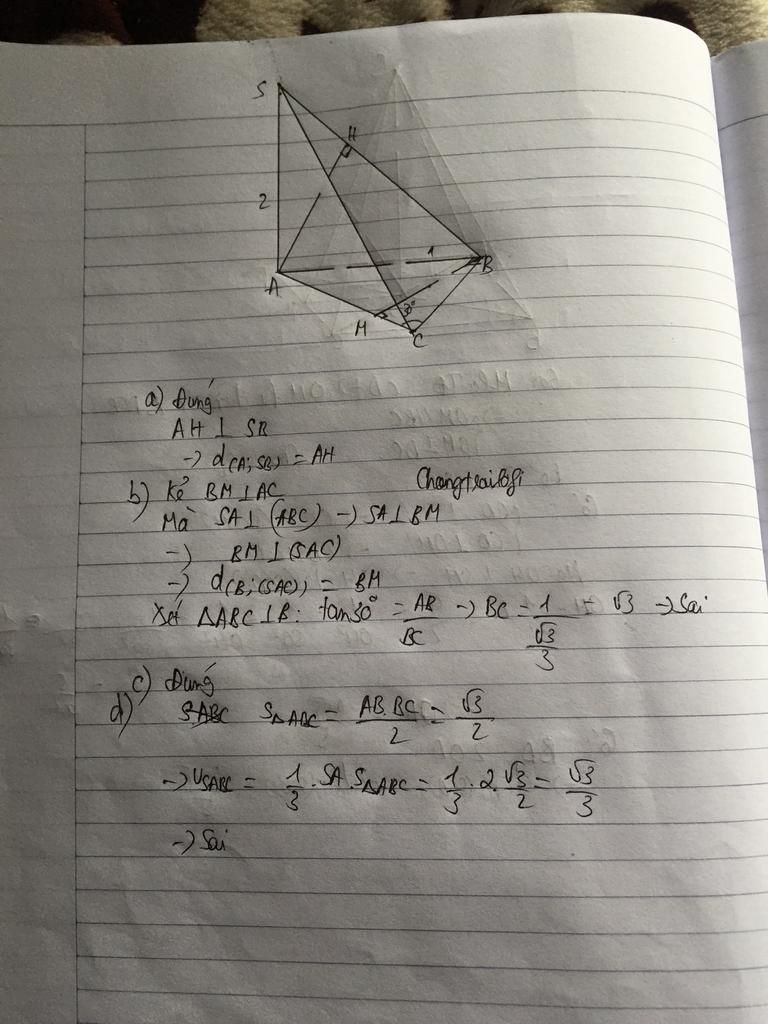 S
H
2
1
A
B
M
30°
C
a) Đúng
AH ⊥ SB
→ d(A;SB) = AH
b) Kẻ BM ⊥ AC
Mà SA ⊥ (ABC) → SA ⊥ BM
→ BM ⊥ (SAC)
→ d(B;(SAC)) = BM
Xét ΔABC ⊥ B: tan30° = AB/BC → BC = 1/(√3/3) = √3 → Sai
c) Đúng
d) S_ΔABC = AB.BC/2 = √3/2
→ V_SABC = 1/3 . SA . S_ΔABC = 1/3 . 2 . √3/2 = √3/3
→ Sai